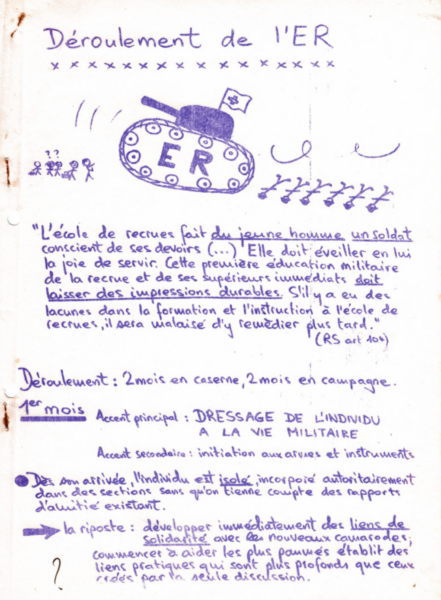 Déroulement de l'ER
x x x x x x x x x x x x x x x x x x
??
ER
"L'école de recrues fait du jeune homme un soldat
conscient de ses devoirs (...) Elle doit éveiller en lui
la joie de servir. Cette première éducation militaire
de la recrue et de ses supérieurs immédiats doit
laisser des impressions durables. S'il y a eu des
lacunes dans la formation et l'instruction à l'école de
recrues, il sera malaisé d'y remédier plus tard."
(RS art 104)
Déroulement : 2 mois en caserne, 2 mois en campagne.
1er mois
Accent principal : DRESSAGE DE L'INDIVIDU
A LA VIE MILITAIRE
Accent secondaire : initiation aux armes et instruments
Dès son arrivée, l'individu est isolé incorporé autoritairement
dans des sections sans qu'on tienne compte des rapports
d'amitié existant.
la riposte : développer immédiatement des liens de
solidarité avec les nouveaux camarades,
commencer à aider les plus paumés établit des
liens pratiques qui sont plus profonds que ceux
créés par la seule discussion.
?